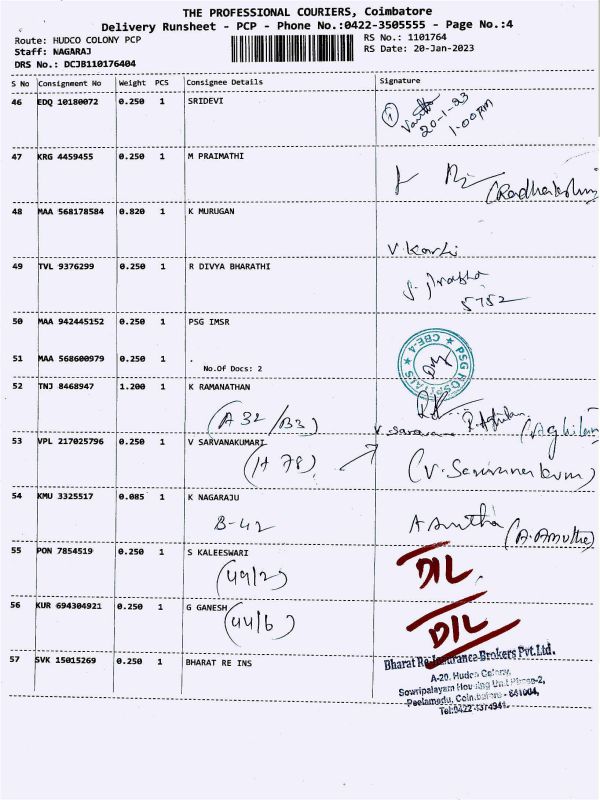 THE PROFESSIONAL COURIERS, Coimbatore
Delivery Runsheet - PCP - Phone No.:0422-3505555 - Page No.:4
Route: HUDCO COLONY PCP
Staff: NAGARAJ
DRS No.: DCJB110176404
RS No.: 1101764
RS Date: 20-Jan-2023
S No Consignment No Weight PCS Consignee Details Signature
46 EDQ 10180072 0.250 1 SRIDEVI
20-1-23
1.00 PM
47 KRG 4459455 0.250 1 M PRAIMATHI
48 MAA 568178584 0.820 1 K MURUGAN
49 TVL 9376299 0.250 1 R DIVYA BHARATHI
5752
50 MAA 942445152 0.250 1 PSG IMSR
PSG HOSPITALS ★ CBE-4 ★
51 MAA 568600979 0.250 1 .
No.Of Docs: 2
52 TNJ 8468947 1.200 1 K RAMANATHAN
(A 32/B3) (Aghilan)
53 VPL 217025796 0.250 1 V SARVANAKUMARI
(H 78)
54 KMU 3325517 0.085 1 K NAGARAJU
B-42
55 PON 7854519 0.250 1 S KALEESWARI
(49/2) DIL
56 KUR 694304921 0.250 1 G GANESH
(44/6) DIL
57 SVK 15015269 0.250 1 BHARAT RE INS
Bharat Re-Insurance Brokers Pvt.Ltd.
A-20, Hudco Colony,
Sowripalayam Housing Unit Phase-2,
Peelamedu, Coimbatore - 641004,